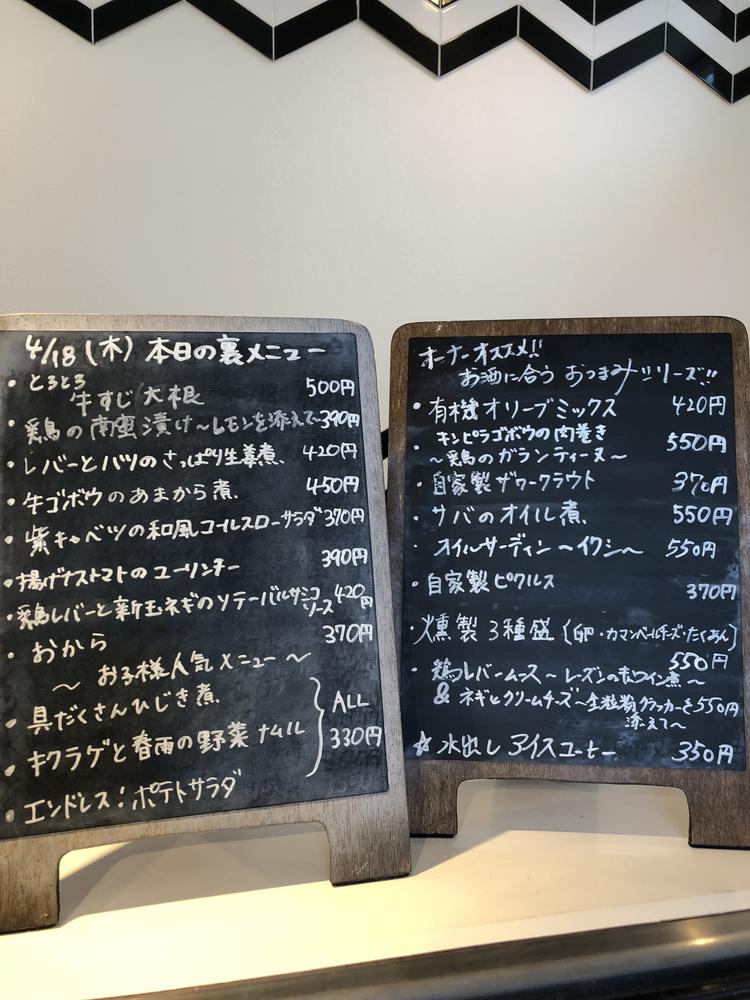 4/18(木) 本日の裏メニュー
・とろとろ
牛すじ大根 500円
・鶏の南蛮漬け〜レモンを添えて〜390円
・レバーとハツのさっぱり生姜煮 420円
・牛ゴボウのあまから煮 450円
・紫キャベツの和風コールスローサラダ 370円
・揚げナストマトのユーリンチー 390円
・鶏レバーと新玉ネギのソテーバルサミコソース 420円
・おから 370円
〜 お子様人気メニュー 〜
・具だくさんひじき煮
・キクラゲと春雨の野菜ナムル
ALL
330円
・エンドレス!ポテトサラダ
オーナーオススメ!!
お酒に合う おつまみシリーズ!!
・有機オリーブミックス 420円
・キンピラゴボウの肉巻き
〜鶏のガランティーヌ〜 550円
・自家製ザワークラウト 370円
・サバのオイル煮 550円
・オイルサーディン〜イワシ〜 550円
・自家製ピクルス 370円
・燻製3種盛(卵・カマンベールチーズ・たくあん)
550円
・鶏レバームース〜レーズンの赤ワイン煮〜
& ネギとクリームチーズ〜全粒粉クラッカーを 550円
添えて〜
☆水出しアイスコーヒー 350円